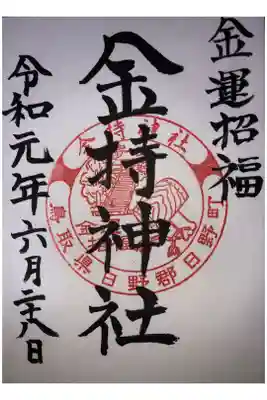 金運招福
金持神社
令和元年六月二十八日
金持神社
鳥取県日野郡日野町